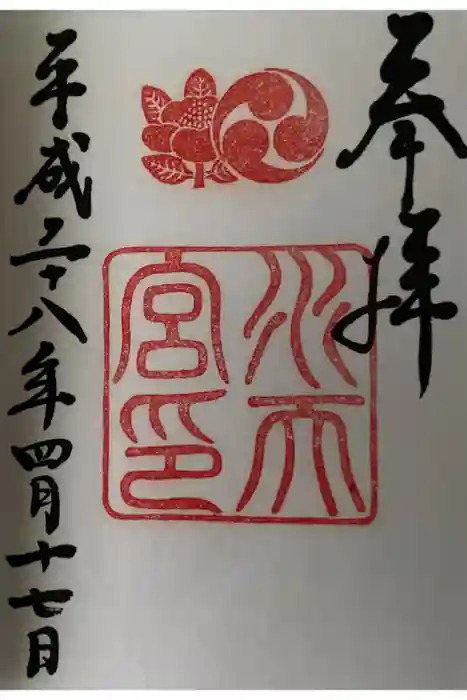 奉拝
水天宮印
平成二十八年四月十七日